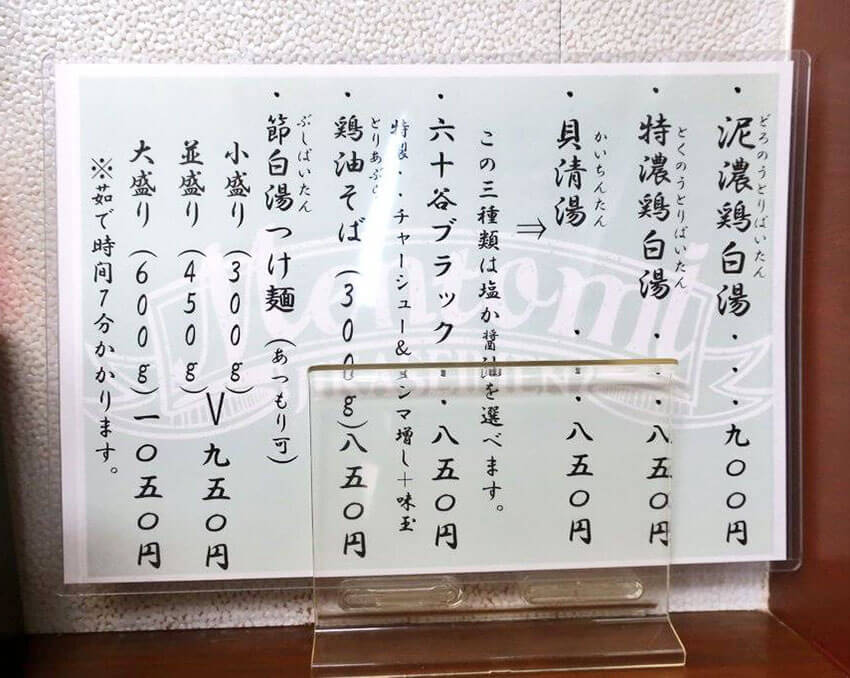 どろのうとりぱいたん
・泥濃鶏白湯・・・九〇〇円
とくのうとりぱいたん
・特濃鶏白湯・・八五〇円
かいちんたん
・貝清湯・・・八五〇円
⇒
この三種類は塩か醤油を選べます。
・六十谷ブラック・・八五〇円
特製・・チャーシュー&メンマ増し+味玉
とりあぶら
・鶏油そば(300g)八五〇円
ぶしぱいたん
・節白湯つけ麺(あつもり可)
小盛り(300g)
並盛り(450g)
>九五〇円
大盛り(600g)一〇五〇円
※茹で時間7分かかります。
Mentomi